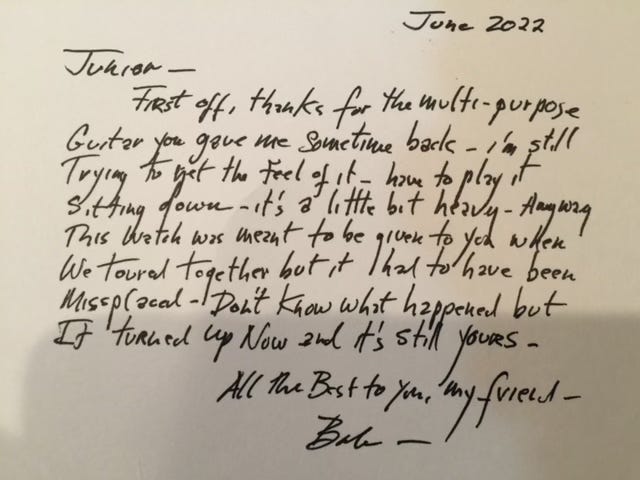 June 2022
Junior –
First off, thanks for the multi-purpose
Guitar you gave me sometime back – i'm still
Trying to get the feel of it – have to play it
Sitting down – it's a little bit heavy – Anyway
This Watch was meant to be given to you when
We toured together but it had to have been
Missplaced – Don't know what happened but
It turned up Now and it's still yours –
All the Best to you, my friend –
Bob –